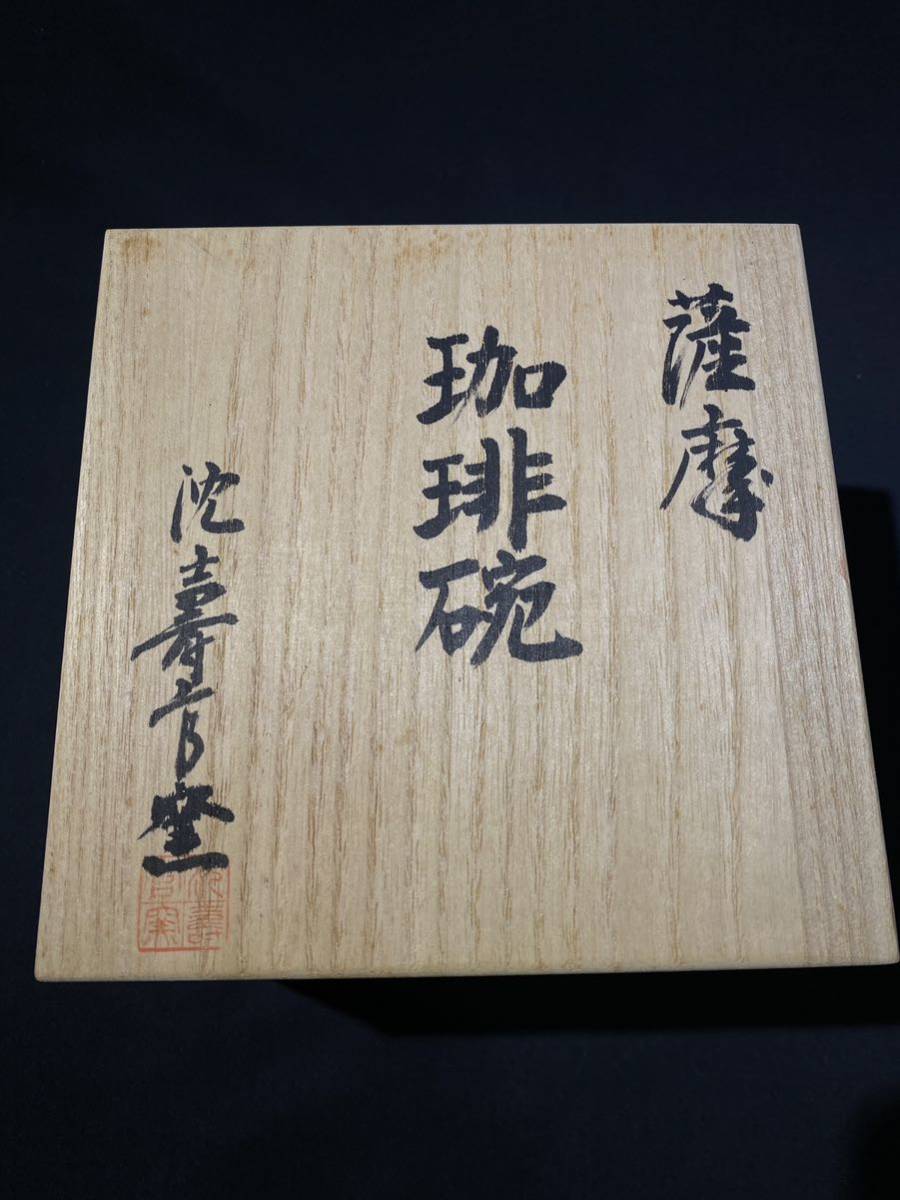 薩摩
珈琲碗
沈壽官窯
沈壽官窯